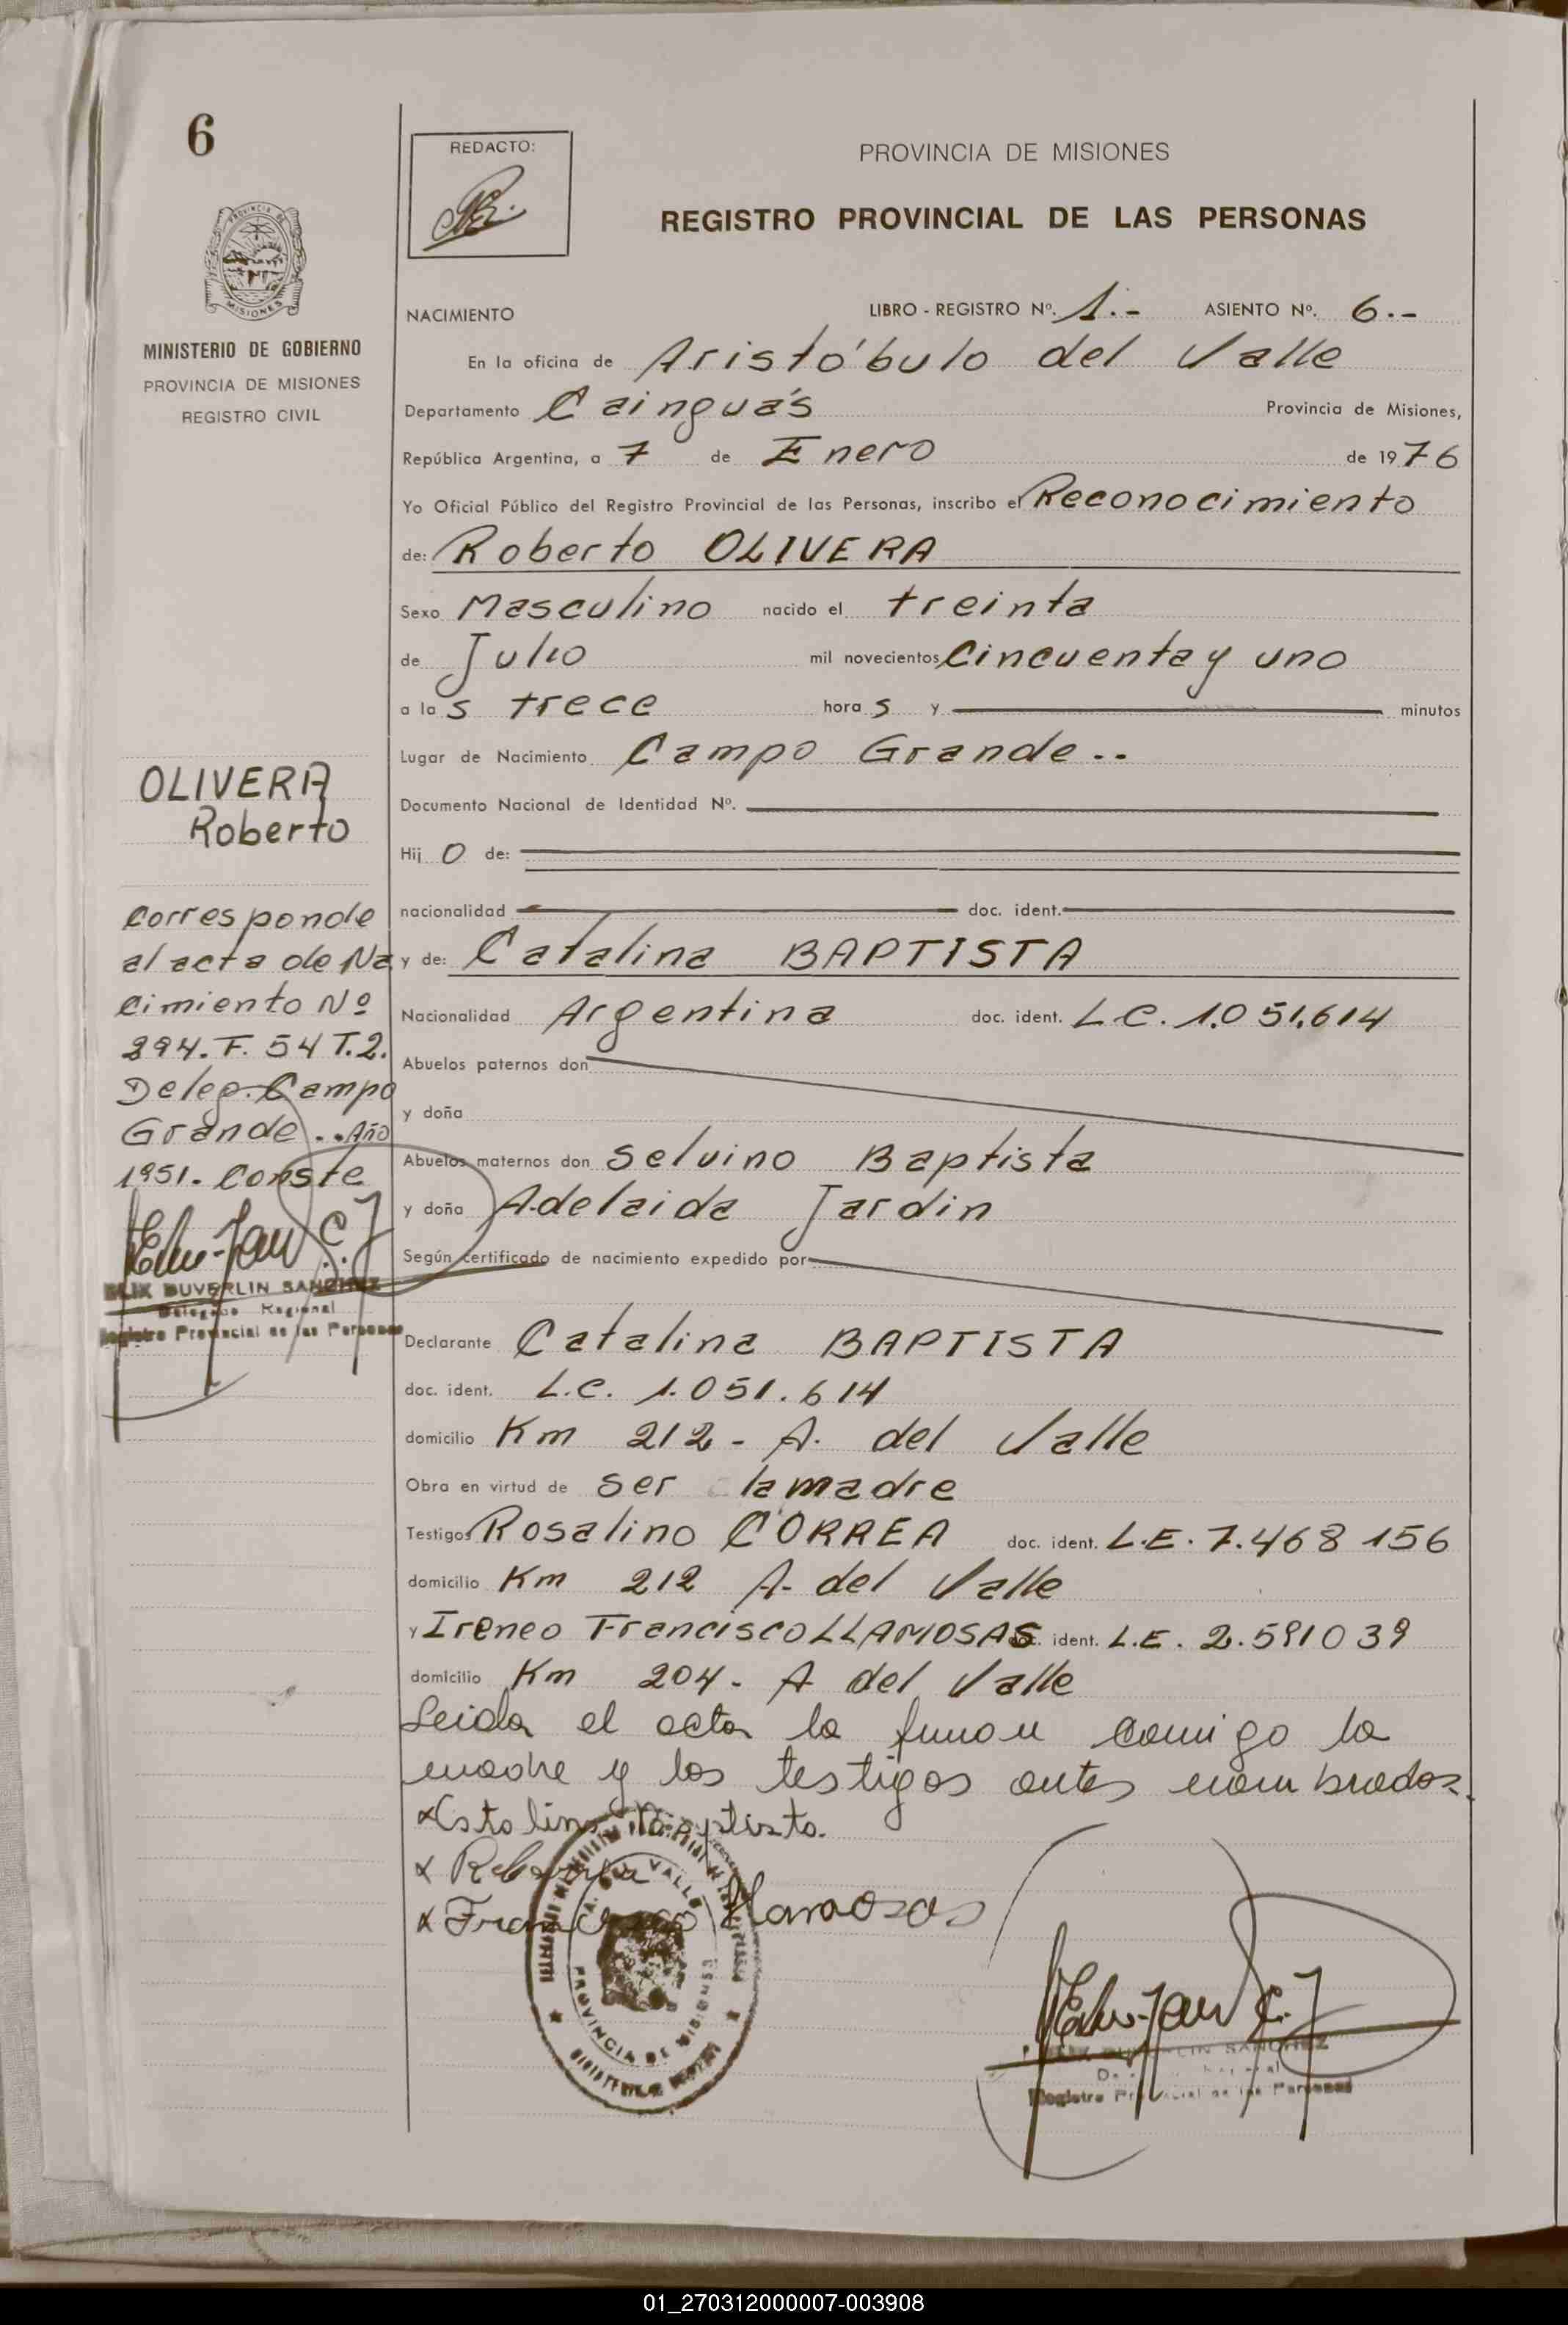 6
REDACTO:
PROVINCIA DE MISIONES
REGISTRO PROVINCIAL DE LAS PERSONAS
MISIONES
MINISTERIO DE GOBIERNO
PROVINCIA DE MISIONES
REGISTRO CIVIL
NACIMIENTO LIBRO - REGISTRO Nº. 1.- ASIENTO Nº. 6.-
En la oficina de Aristóbulo del Valle
Departamento Cainguás Provincia de Misiones,
República Argentina, a 7 de Enero de 1976
Yo Oficial Público del Registro Provincial de las Personas, inscribo el Reconocimiento
de: Roberto OLIVERA
Sexo Masculino nacido el treinta
de Julio mil novecientos Cincuenta y uno
a las trece horas y minutos
Lugar de Nacimiento Campo Grande..
Documento Nacional de Identidad Nº.
Hijo de:
nacionalidad doc. ident.
y de: Catalina BAPTISTA
Nacionalidad Argentina doc. ident. L.C. 1.051.614
Abuelos paternos don
y doña
Abuelos maternos don Selvino Baptista
y doña Adelaida Jardin
Según certificado de nacimiento expedido por
Declarante Catalina BAPTISTA
doc. ident. L.C. 1.051.614
domicilio Km 212 - A. del Valle
Obra en virtud de ser la madre
Testigos Rosalino CORREA doc. ident. L.E. 7.468 156
domicilio Km 212 A. del Valle
y Ireneo Francisco LLAMOSAS doc. ident. L.E. 2.591039
domicilio Km 204 - A del Valle
Leida el acta la firman comigo la
madre y los testigos antes nombrados.
Catalina Baptista.
Francisco Llamosas
A. DEL VALLE
PROVINCIA DE MISIONES
FELIX DUVERLIN SANCHEZ
Delegado Regional
Registro Provincial de las Personas
OLIVERA
Roberto
Corresponde
al acta de Na
cimiento Nº
294. F. 54 T.2.
Deleg. Campo
Grande.. Año
1951. Conste
FELIX DUVERLIN SANCHEZ
Delegado Regional
Registro Provincial de las Personas
01_270312000007-003908